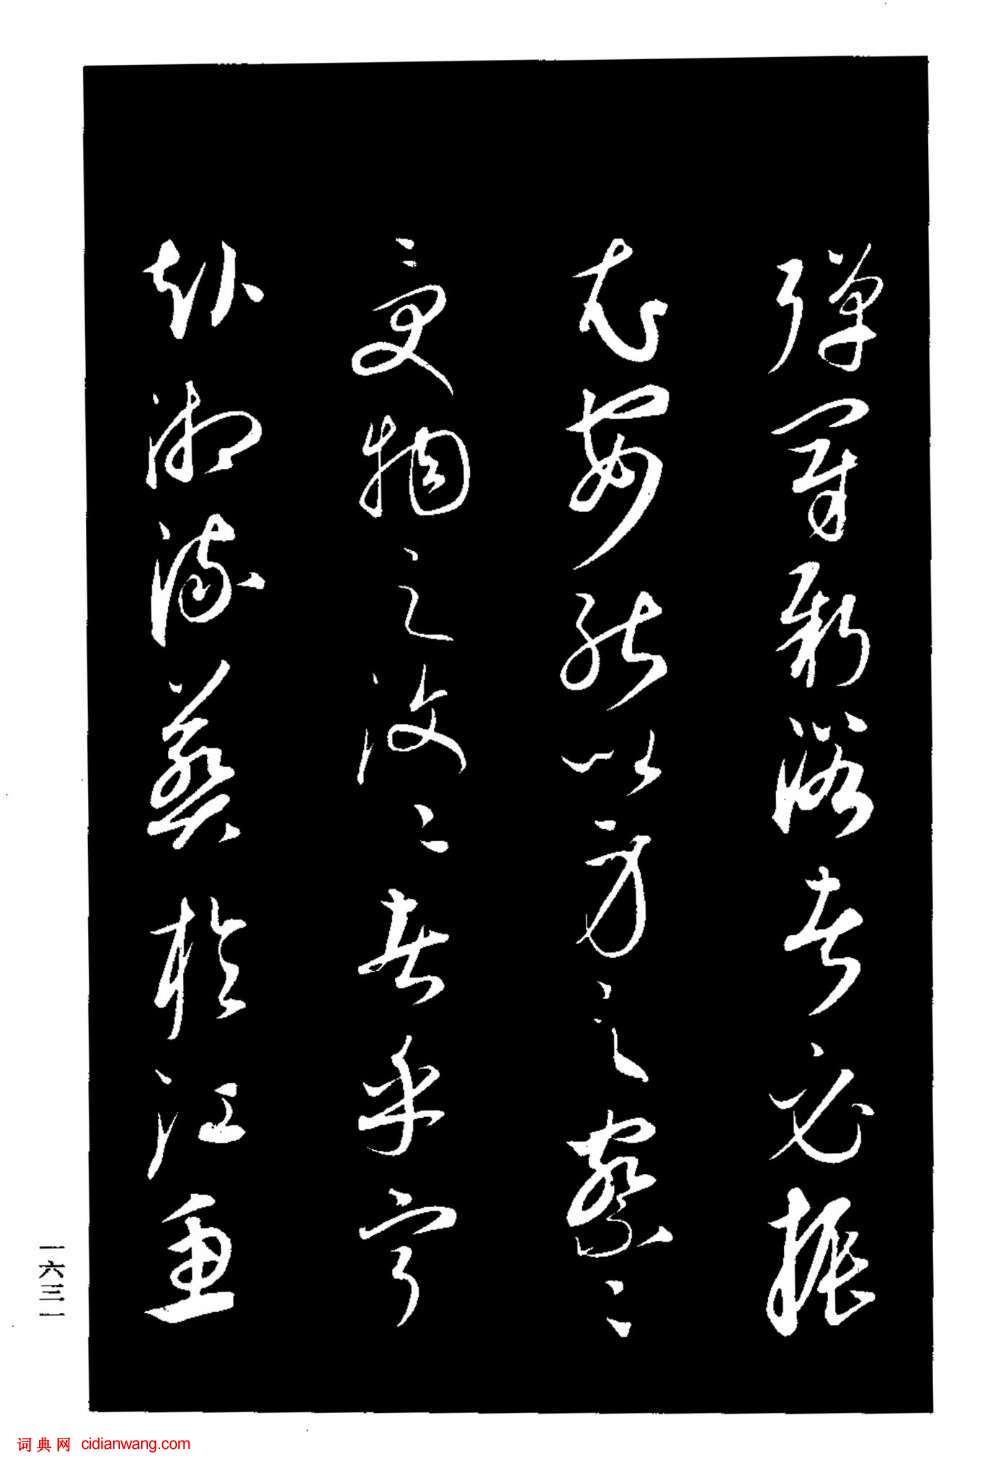 彈冠新浴者必振
衣安能以身之察〻
受物之汶〻者乎寧
赴湘流葬於江魚
一六三一
词典网 cidianwang.com